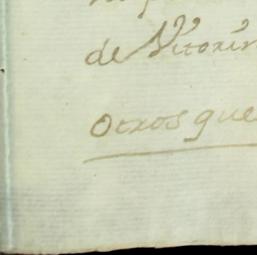 de Vitorin
Otros que